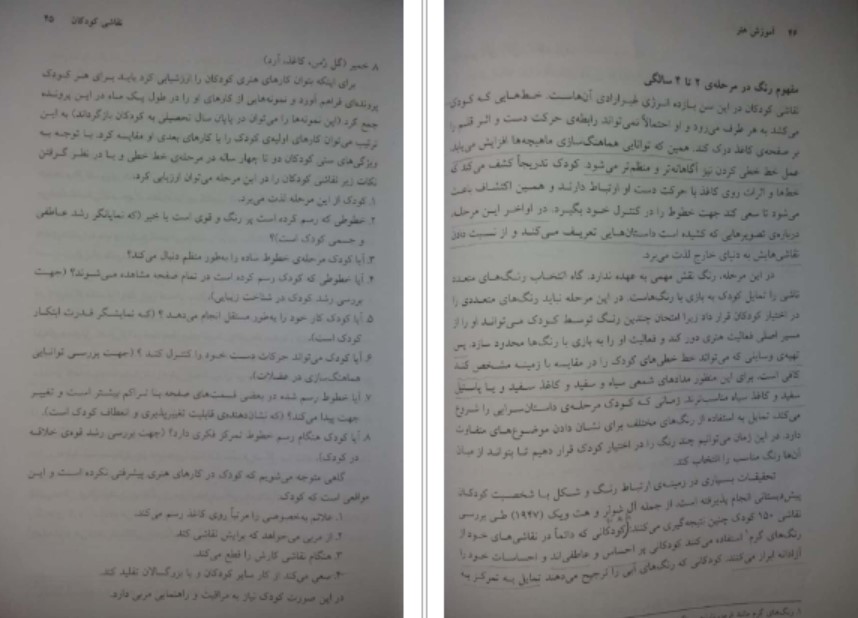 ۴۶ آموزش هنر
مفهوم رنگ در مرحله‌ی ۲ تا ۴ سالگی
نقاشی کودکان در این سن بازده انرژی غیرارادی آن‌هاست. خط‌هایی که کودک
می‌کشد به هر طرف می‌رود و او احتمالاً نمی‌تواند رابطه‌ی حرکت دست و اثر قلم را
بر صفحه‌ی کاغذ درک کند. همین که توانایی هماهنگ‌سازی ماهیچه‌ها افزایش می‌یابد،
عمل خط خطی کردن نیز آگاهانه‌تر و منظم‌تر می‌شود. کودک تدریجاً کشف می‌کند که
خط‌ها و اثرات روی کاغذ با حرکت دست او ارتباط دارند و همین اکتشاف باعث
می‌شود تا سعی کند جهت خطوط را در کنترل خود بگیرد. در اواخر این مرحله،
درباره‌ی تصویرهایی که کشیده است داستان‌هایی تعریف می‌کند و از نسبت دادن
نقاشی‌هایش به دنیای خارج لذت می‌برد.
در این مرحله، رنگ نقش مهمی به عهده ندارد. گاه انتخاب رنگ‌های متعدد
ناشی از تمایل کودک به بازی با رنگ‌هاست. در این مرحله نباید رنگ‌های متعددی را
در اختیار کودکان قرار داد زیرا امتحان چندین رنگ توسط کودک می‌تواند او را از
مسیر اصلی فعالیت هنری دور کند و فعالیت او را به بازی با رنگ‌ها محدود سازد. پس
تهیه‌ی وسایلی که می‌تواند خط خطی‌های کودک را در مقایسه با زمینه مشخص کند
کافی است. برای این منظور مدادهای شمعی سیاه و سفید و کاغذ سفید و یا پاستیل
سفید و کاغذ سیاه مناسب‌ترند. زمانی که کودک مرحله‌ی داستان‌سرایی را شروع
می‌کند، تمایل به استفاده از رنگ‌های مختلف برای نشان دادن موضوع‌های متفاوت
دارد. در این زمان می‌توانیم چند رنگ را در اختیار کودک قرار دهیم تا بتواند از میان
آن‌ها رنگ مناسب را انتخاب کند.
تحقیقات بسیاری در زمینه‌ی ارتباط رنگ و شکل با شخصیت کودکان
پیش‌دبستانی انجام پذیرفته است. از جمله آل شولر و هت ویک (۱۹۴۷) طی بررسی
نقاشی ۱۵۰ کودک چنین نتیجه‌گیری می‌کنند: کودکانی که دائماً در نقاشی‌های خود از
رنگ‌های گرم۱ استفاده می‌کنند کودکانی پر احساس و عاطفی‌اند و احساسات خود را
آزادانه ابراز می‌کنند. کودکانی که رنگ‌های آبی را ترجیح می‌دهند تمایل به تمرکز به
۱. رنگ‌های گرم مانند
نقاشی کودکان ۴۵
۸. خمیر (گل رُس، کاغذ، آرد)
برای اینکه بتوان کارهای هنری کودکان را ارزشیابی کرد باید برای هر کودک
پرونده‌ای فراهم آورد و نمونه‌هایی از کارهای او را در طول یک ماه در این پرونده
جمع کرد (این نمونه‌ها را می‌توان در پایان سال تحصیلی به کودکان بازگرداند) به این
ترتیب می‌توان کارهای اولیه‌ی کودک را با کارهای بعدی او مقایسه کرد. با توجه به
ویژگی‌های سنی کودکان دو تا چهار ساله در مرحله‌ی خط خطی و با در نظر گرفتن
نکات زیر نقاشی کودکان را در این مرحله می‌توان ارزیابی کرد.
۱. کودک از این مرحله لذت می‌برد.
۲. خطوطی که رسم کرده است پر رنگ و قوی است یا خیر (که نمایانگر رشد عاطفی
و جسمی کودک است)؟
۳. آیا کودک مرحله‌ی خطوط ساده را به‌طور منظم دنبال می‌کند؟
۴. آیا خطوطی که کودک رسم کرده است در تمام صفحه مشاهده می‌شوند؟ (جهت
بررسی رشد کودک در شناخت زیبایی).
۵. آیا کودک کار خود را به‌طور مستقل انجام می‌دهد؟ (که نمایشگر قدرت ابتکار
کودک است).
۶. آیا کودک می‌تواند حرکات دست خود را کنترل کند؟ (جهت بررسی توانایی
هماهنگ‌سازی در عضلات).
۷. آیا خطوط رسم شده در بعضی قسمت‌های صفحه با تراکم بیشتر است و تغییر
جهت پیدا می‌کند؟ (که نشان‌دهنده‌ی قابلیت تغییرپذیری و انعطاف کودک است).
۸. آیا کودک هنگام رسم خطوط تمرکز فکری دارد؟ (جهت بررسی رشد قوه‌ی خلاقه
در کودک).
گاهی متوجه می‌شویم که کودک در کارهای هنری پیشرفتی نکرده است و این
مواقعی است که کودک:
۱. علائم به‌خصوصی را مرتباً روی کاغذ رسم می‌کند.
۲. از مربی می‌خواهد که برایش نقاشی کند.
۳. هنگام نقاشی کارش را قطع می‌کند.
۴. سعی می‌کند از کار سایر کودکان و یا بزرگسالان تقلید کند.
در این صورت کودک نیاز به مراقبت و راهنمایی مربی دارد.